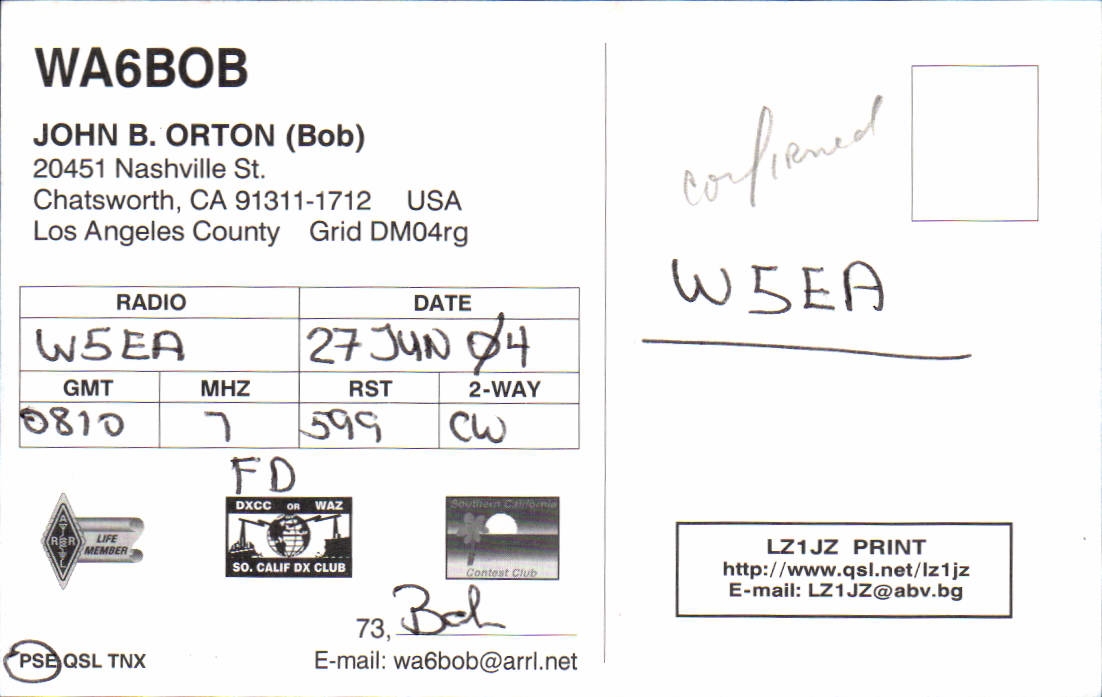 WA6BOB
JOHN B. ORTON (Bob)
20451 Nashville St.
Chatsworth, CA 91311-1712 USA
Los Angeles County Grid DM04rg
RADIO DATE
W5EA 27 JUN 04
GMT MHZ RST 2-WAY
0810 7 599 CW
FD
ARRL
LIFE
MEMBER
DXCC OR WAZ
SO. CALIF DX CLUB
Southern California
Contest Club
73, Bob
PSE QSL TNX
E-mail: wa6bob@arrl.net
confirmed
W5EA
LZ1JZ PRINT
http://www.qsl.net/lz1jz
E-mail: LZ1JZ@abv.bg